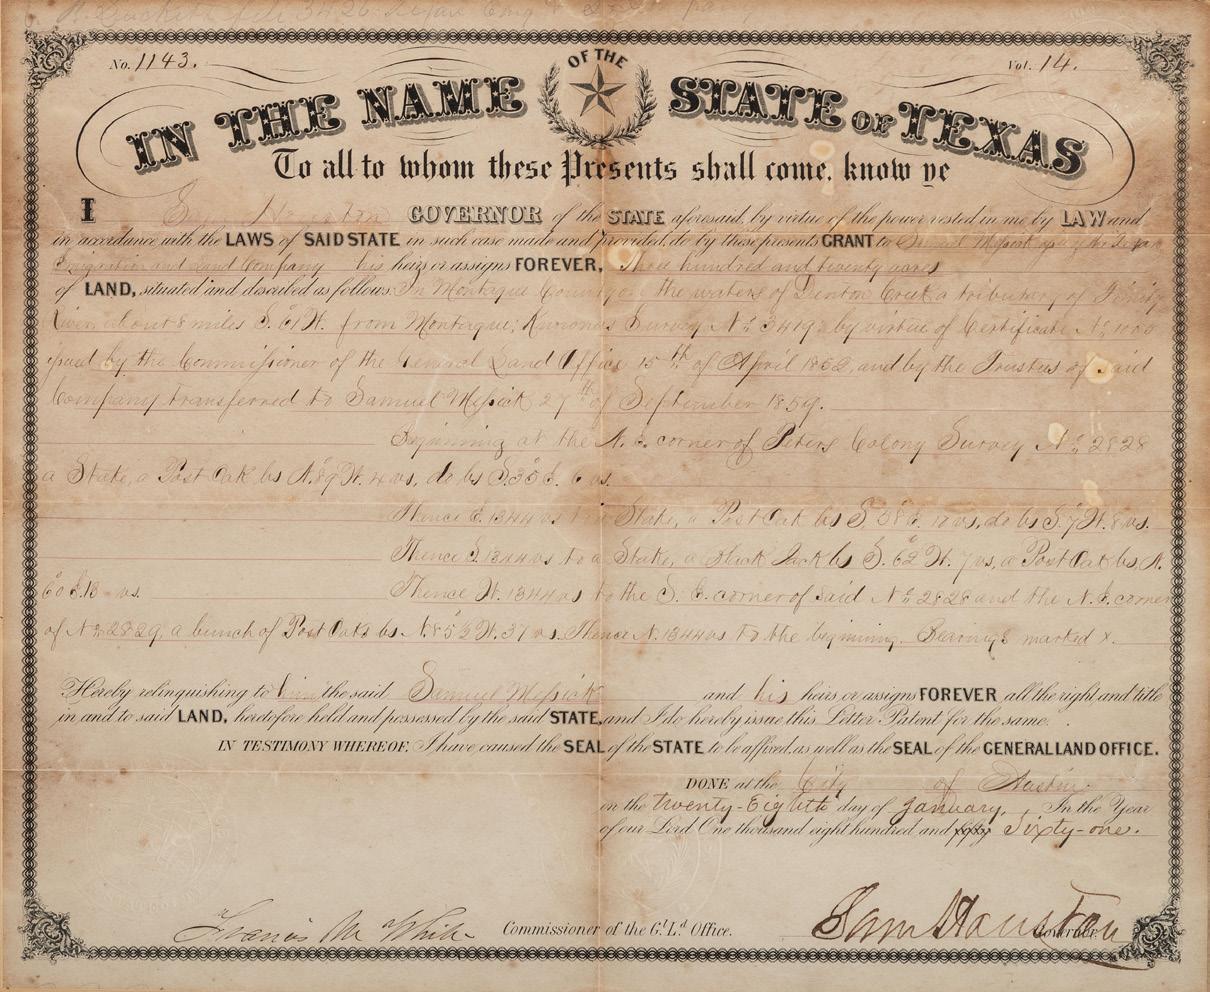 No. 1143.
Vol. 14.
IN THE NAME OF THE STATE OF TEXAS
To all to whom these Presents shall come, know ye
I Sam Houston GOVERNOR of the STATE aforesaid, by virtue of the power vested in me by LAW and
in accordance with the LAWS of SAID STATE in such case made and provided, do by these presents GRANT to Samuel Messick of the Texas
Emigration and Land Company his heirs or assigns FOREVER, Three hundred and twenty acres
of LAND, situated and described as follows: In Montague County on the waters of Denton Creek a tributary of Trinity
River about 8 miles S. 61 W. from Montague; Survey No. 3419 by virtue of Certificate No.
issued by the Commissioner of the General Land Office 15th of April 1852, and by the Trustees of Said
Company transferred to Samuel Messick 27th of September 1859.
Beginning at the N. E. corner of Peters Colony Survey No. 2828
a Stake, a Post Oak bs N. 89 W. 4 vs, do bs S. 35 E. 6 vs.
Thence E. 1344 vs to a Stake, a Post Oak bs S. 58 E. 12 vs, do bs S. 7 W. 8 vs.
Thence S. 1344 vs to a Stake, a Black Jack bs S. 62 W. 7 vs, a Post Oak bs, N.
60 E. 13 vs. Thence W. 1344 vs to the S. E. corner of said No. 2828 and the N. E. corner
of No. 2829, a bunch of Post Oaks bs N. 85½ W. 37 vs. Thence N. 1344 vs to the beginning. Bearings marked X.
Hereby relinquishing to him the said Samuel Messick and his heirs or assigns FOREVER all the right and title
in and to said LAND, heretofore held and possessed by the said STATE, and I do hereby issue this Letter Patent for the same.
IN TESTIMONY WHEREOF, I have caused the SEAL of the STATE to be affixed, as well as the SEAL of the GENERAL LAND OFFICE.
DONE at the City of Austin
on the twenty-Eighth day of January, In the Year
of our Lord One thousand eight hundred and fifty Sixty-one.
Francis M White Commissioner of the Gl. Ld. Office. Sam Houston Governor